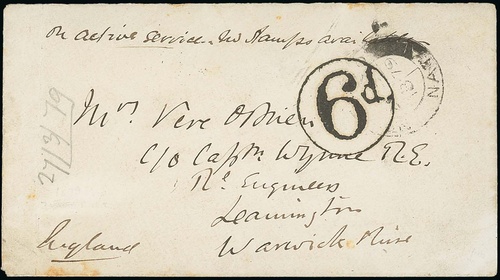 on active service. No Stamps available
6d.
NATAL
Mrs Vere O'Brien
C/o Captn Wynne R.E.
Rl Engineers
Leamington
Warwickshire
England
27/3/79